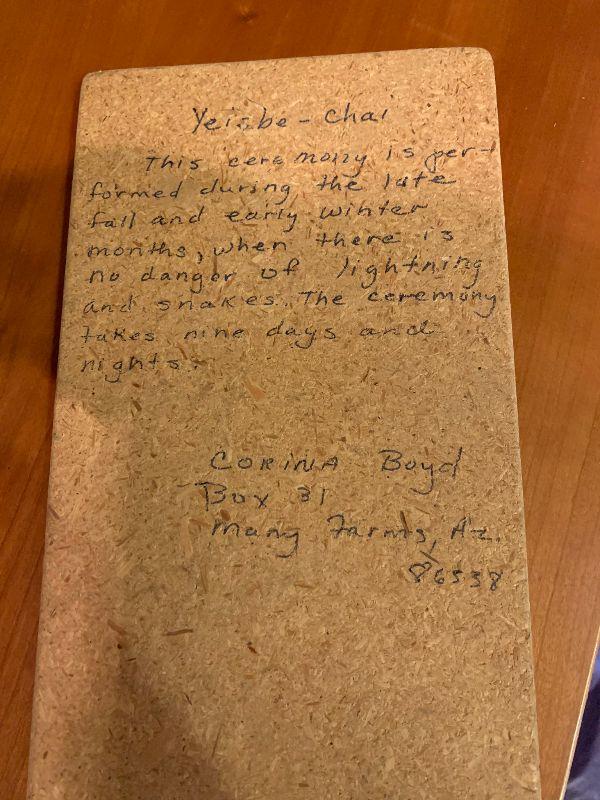 Yeisbe - Chai
This ceremony is per-
formed during the late
fall and early winter
months, when there is
no danger of lightning
and snakes. The ceremony
takes nine days and
nights.
CORINA Boyd
Box 31
Many Farms, Az.
86538